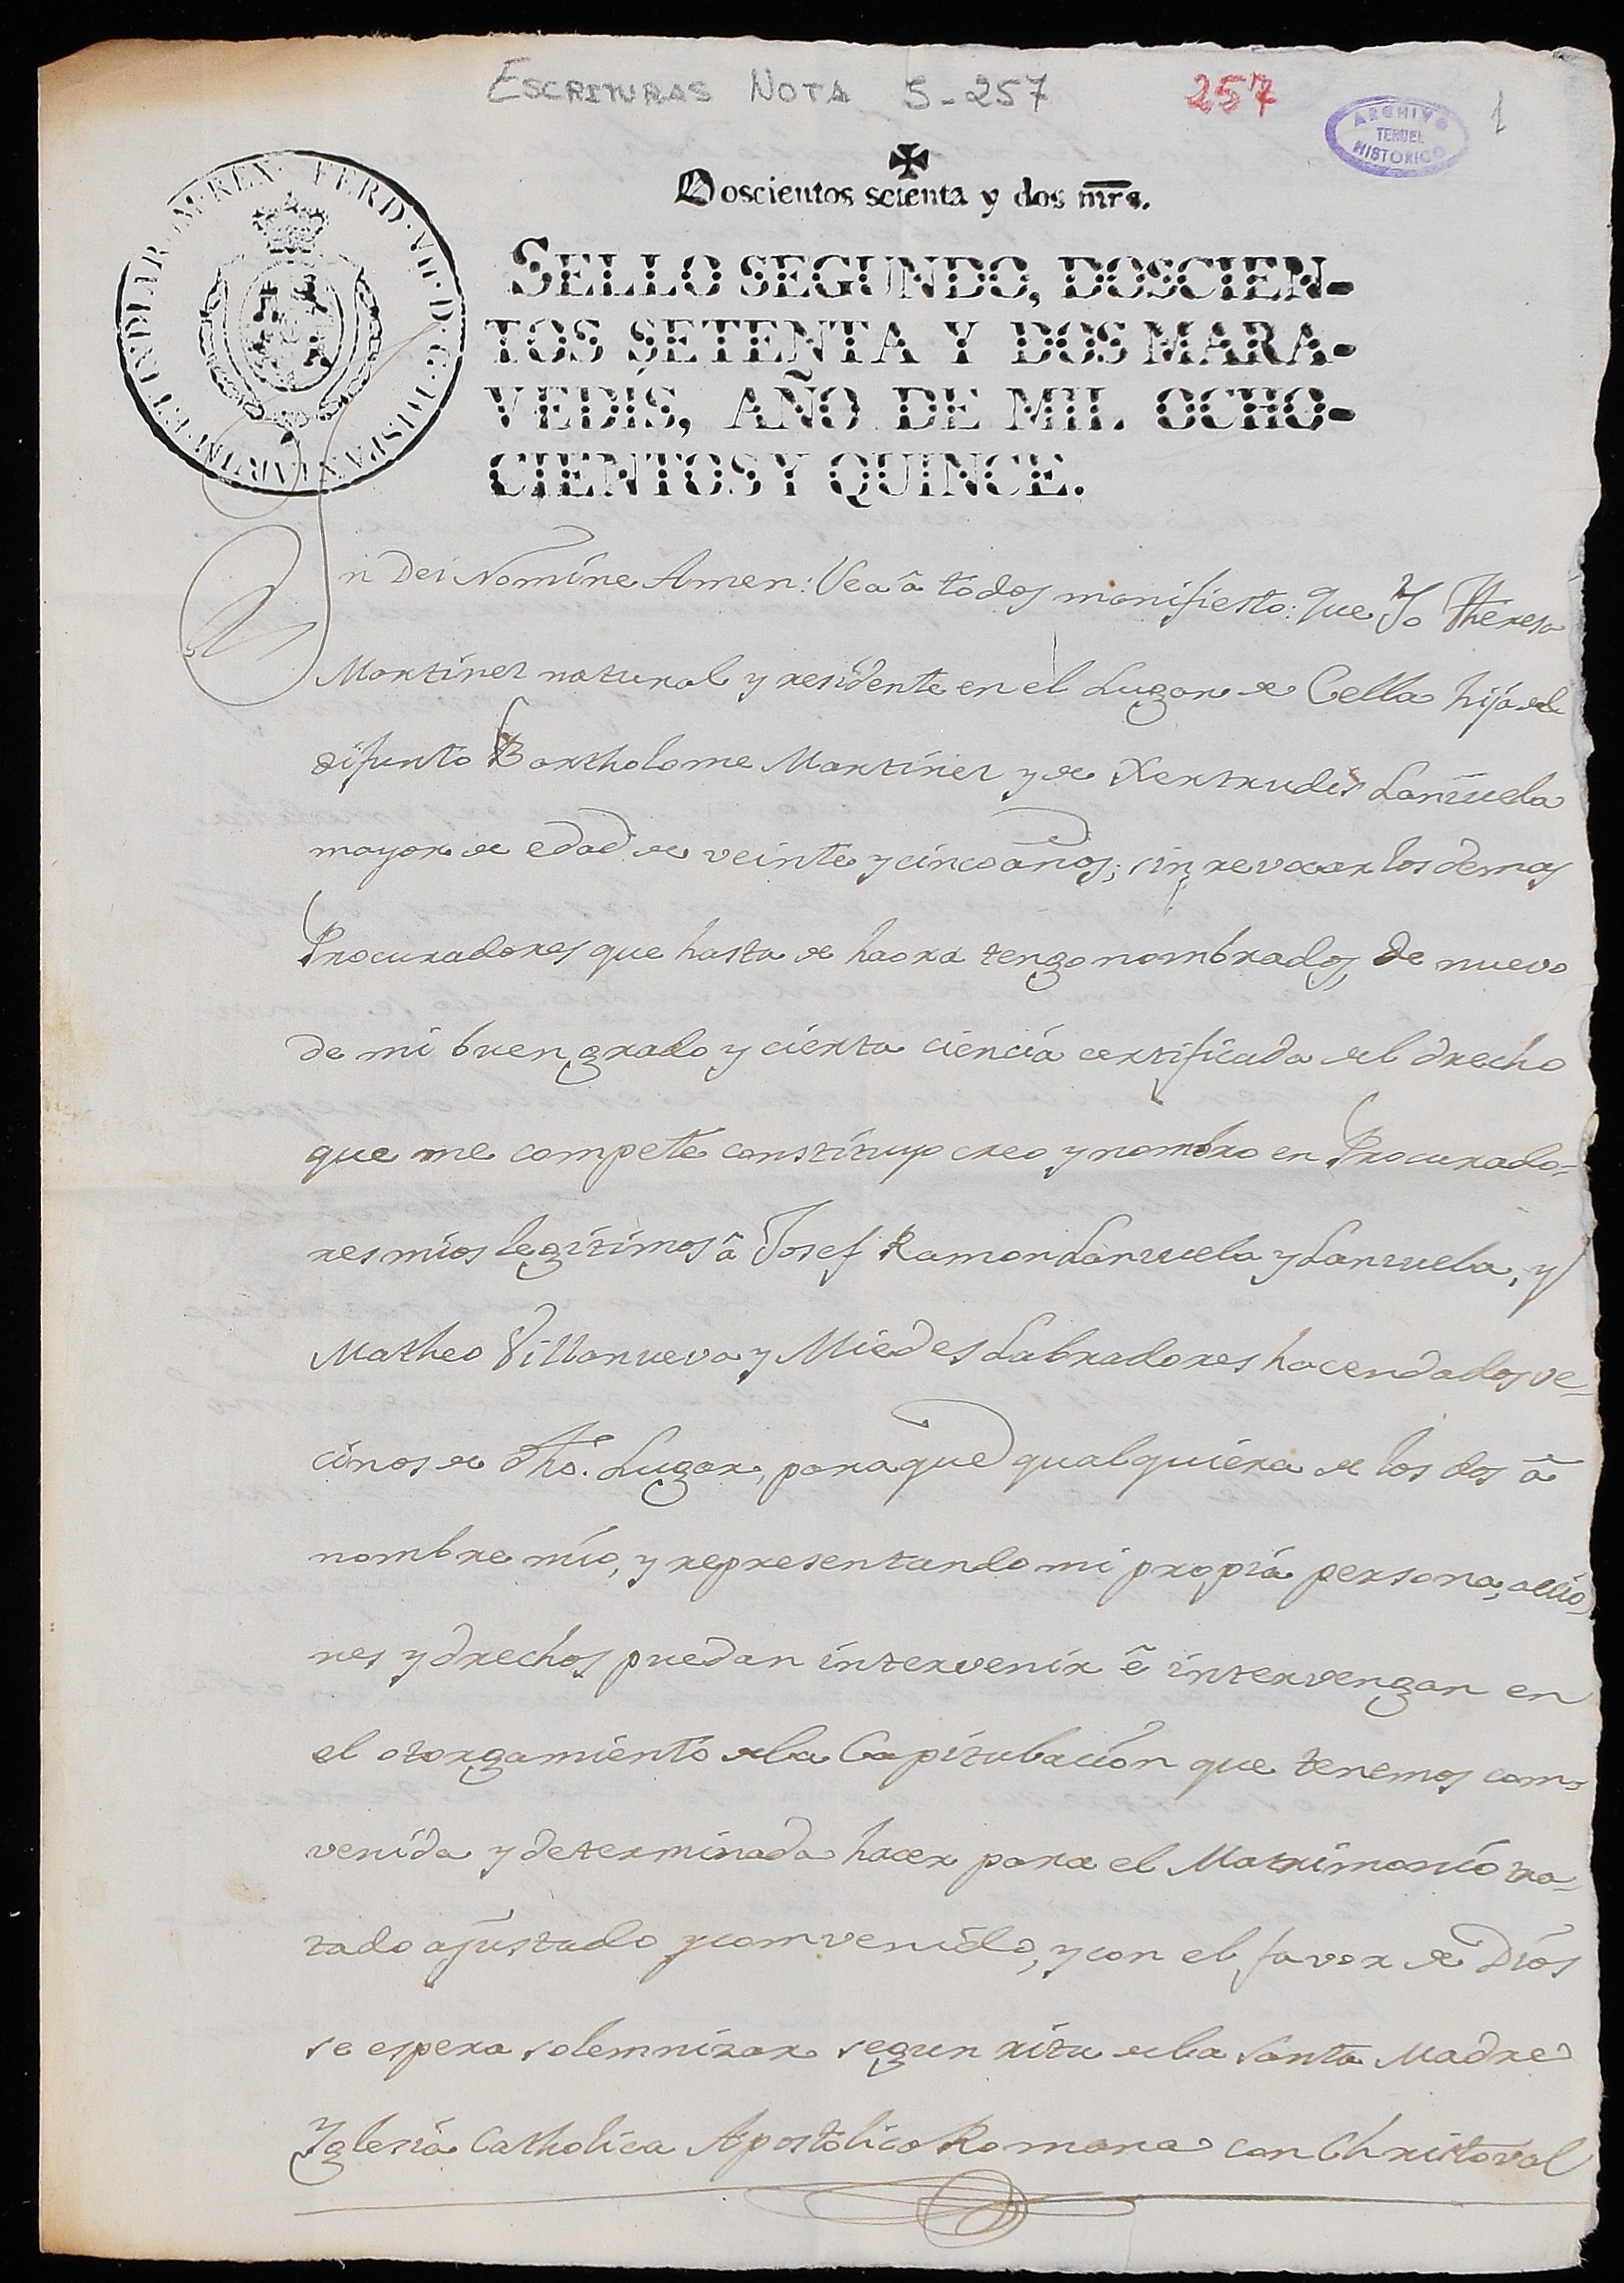 ESCRITURAS NOTA 5-257
257
ARCHIVO
TERUEL
HISTORICO
1
FERD·VII·D·G·HISPAN·ET IND·IAR·M·REX·
Doscientos setenta y dos mrs.
SELLO SEGUNDO, DOSCIEN-
TOS SETENTA Y DOS MARA-
VEDÍS, AÑO DE MIL OCHO-
CIENTOS Y QUINCE.
In Dei Nomine Amen: Vea â todos manifiesto: que Yo Theresa
Martinez natural y residente en el Lugar de Cella hija del
difunto Bartholome Martinez y de Xertrudis Lanzuela
mayor de edad de veinte y cinco años; sin revocar los demas
Procuradores que hasta de haora tengo nombrados, de nuevo
de mi buen grado y cierta ciencia certificada del drecho
que me compete constituyo creo y nombro en Procurado=
res mios legitimos â Josef Ramon Lanzuela y Lanzuela, y
Matheo Villanueva y Miedes Labradores hacendados ve=
cinos de dho. Lugar, para que qualquiera de los dos â
nombre mio, y representando mi propia persona, accio=
nes y drechos puedan intervenir ê intervengan en
el otorgamiento de la Capitulacion que tenemos com=
venida y determinada hacer para el Matrimonio tra=
tado ajustado y comvenido, y con el favor de Dios
se espera solemnizar segun ritu de la Santa Madre
Yglesia Catholica Apostolico Romana con Christoval